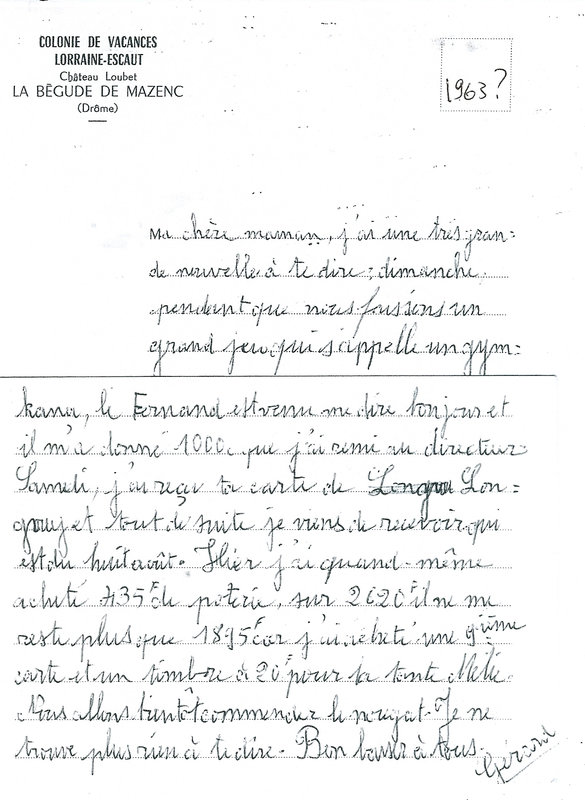 COLONIE DE VACANCES
LORRAINE-ESCAUT
Château Loubet
LA BÈGUDE DE MAZENC
(Drôme)
1963?
Ma chère maman, j'ai une très gran=
de nouvelle à te dire : dimanche
pendant que nous faisions un
grand jeu qui s'appelle un gym=
kana, le Fernand est venu me dire bonjour et
il m'a donné 1000, que j'ai remi au directeur
Samedi, j'ai reçu ta carte de Longuy Lon=
guuy et tout de suite je viens de recevoir qui
est du huit août. Hier j'ai quand-même
acheté 435F de poterie, sur 2620F il ne me
reste plus que 1895F car j'ai acheté une 9ième
carte et un timbre à 20F pour la tante Mélie.
Nous allons bientôt commender le nougat. Je ne
trouve plus rien à te dire. Bon baiser à tous.
Gérard